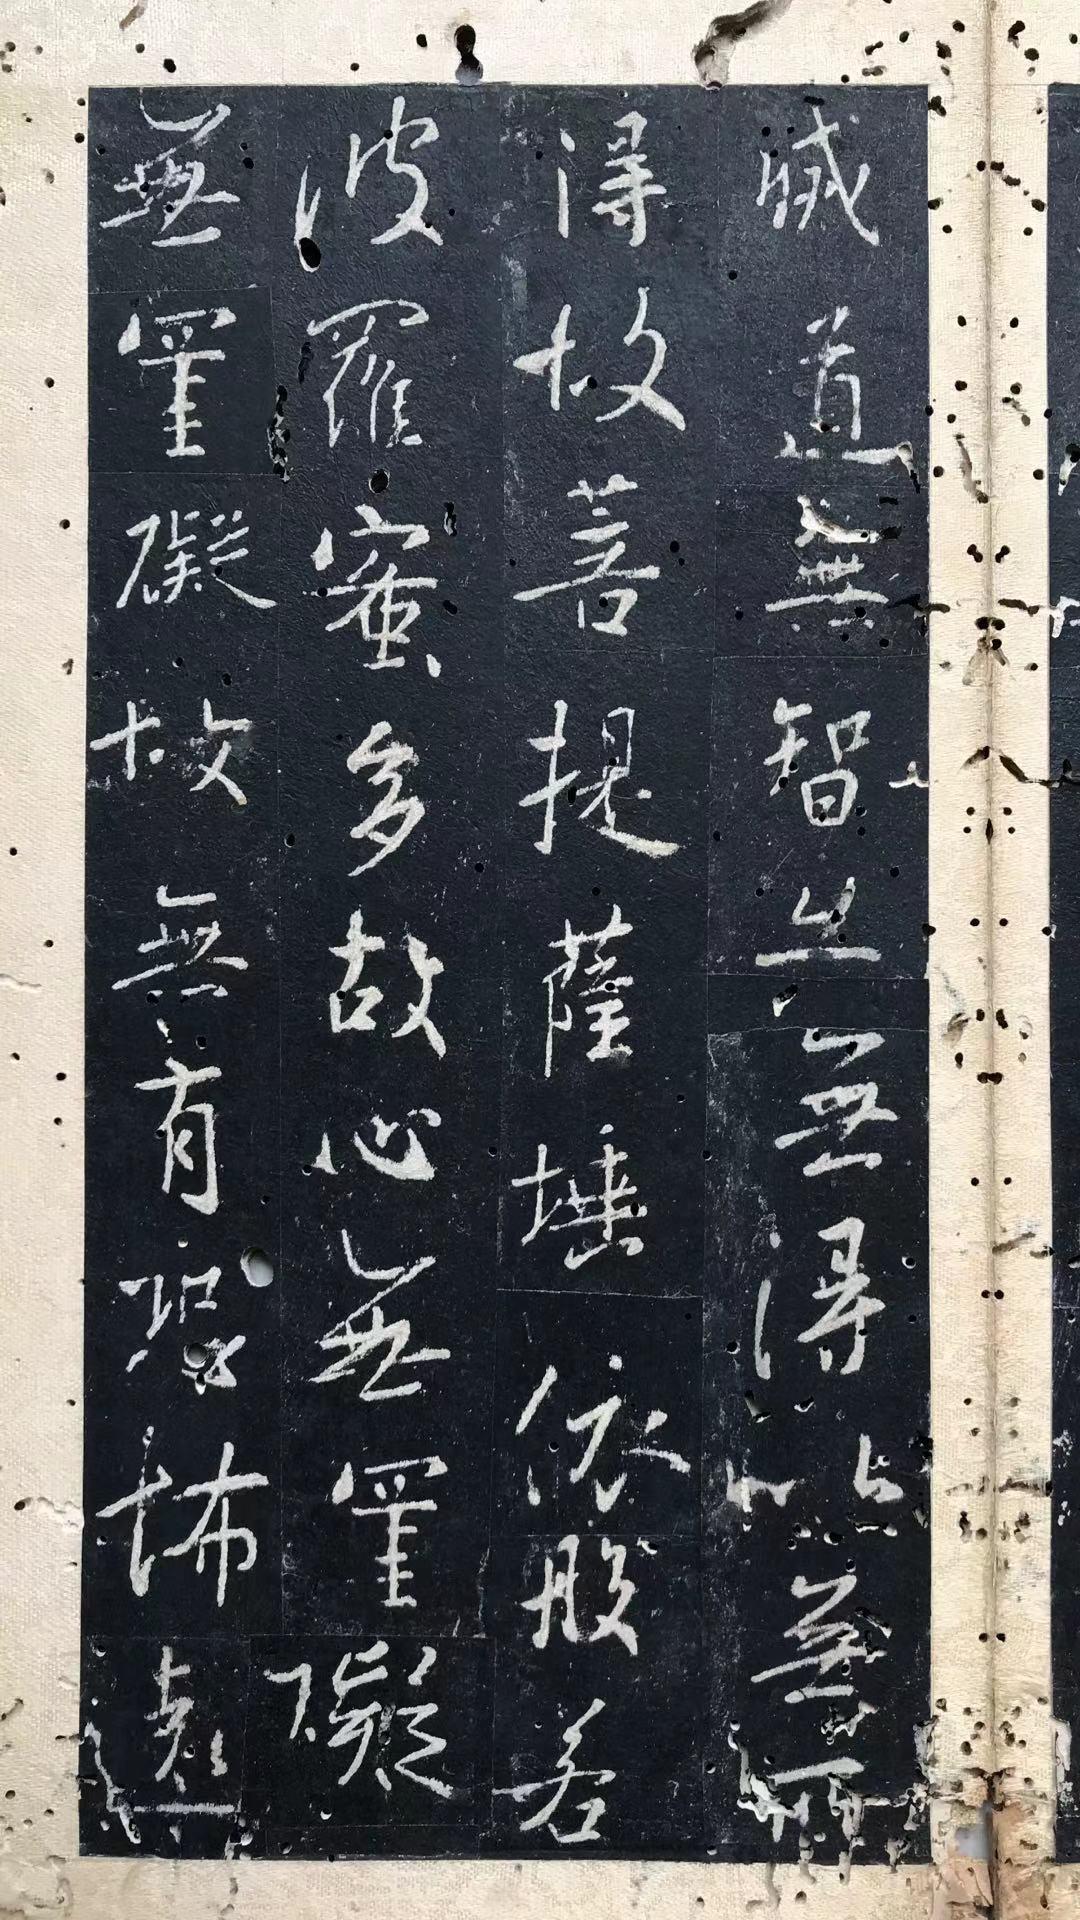 滅道無智亦無得以無所
得故菩提薩埵依般若
波羅蜜多故心無罣礙
無罣礙故無有恐怖遠